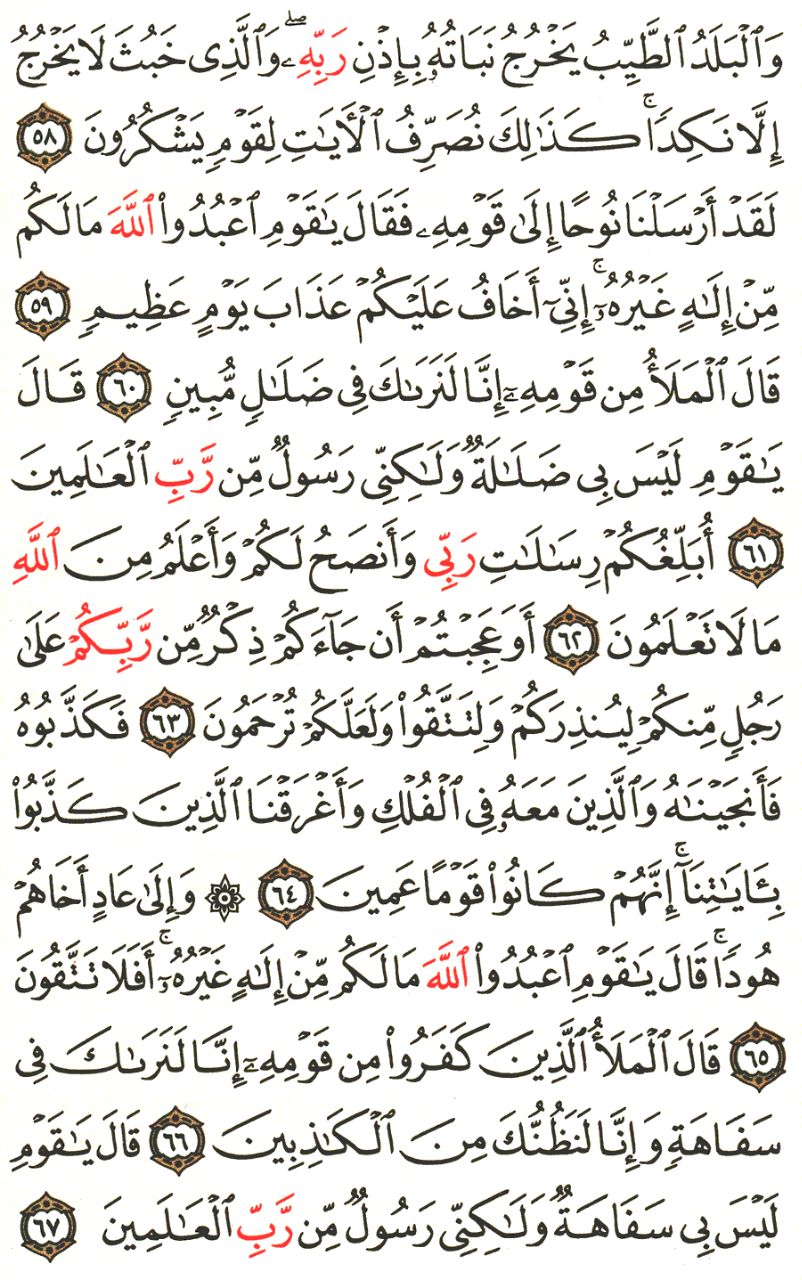 وَٱلۡبَلَدُ ٱلطَّيِّبُ يَخۡرُجُ نَبَاتُهُۥ بِإِذۡنِ رَبِّهِۦۖ وَٱلَّذِى خَبُثَ لَا يَخۡرُجُ
إِلَّا نَكِدٗاۚ كَذَٰلِكَ نُصَرِّفُ ٱلۡأٓيَٰتِ لِقَوۡمٖ يَشۡكُرُونَ ٥٨
لَقَدۡ أَرۡسَلۡنَا نُوحًا إِلَىٰ قَوۡمِهِۦ فَقَالَ يَٰقَوۡمِ ٱعۡبُدُواْ ٱللَّهَ مَا لَكُم
مِّنۡ إِلَٰهٍ غَيۡرُهُۥٓۚ إِنِّىٓ أَخَافُ عَلَيۡكُمۡ عَذَابَ يَوۡمٍ عَظِيمٖ ٥٩
قَالَ ٱلۡمَلَأُ مِن قَوۡمِهِۦٓ إِنَّا لَنَرَىٰكَ فِى ضَلَٰلٖ مُّبِينٖ ٦٠ قَالَ
يَٰقَوۡمِ لَيۡسَ بِى ضَلَٰلَةٞ وَلَٰكِنِّى رَسُولٞ مِّن رَّبِّ ٱلۡعَٰلَمِينَ
٦١ أُبَلِّغُكُمۡ رِسَٰلَٰتِ رَبِّى وَأَنصَحُ لَكُمۡ وَأَعۡلَمُ مِنَ ٱللَّهِ
مَا لَا تَعۡلَمُونَ ٦٢ أَوَعَجِبۡتُمۡ أَن جَآءَكُمۡ ذِكۡرٞ مِّن رَّبِّكُمۡ عَلَىٰ
رَجُلٖ مِّنكُمۡ لِيُنذِرَكُمۡ وَلِتَتَّقُواْ وَلَعَلَّكُمۡ تُرۡحَمُونَ ٦٣ فَكَذَّبُوهُ
فَأَنجَيۡنَٰهُ وَٱلَّذِينَ مَعَهُۥ فِى ٱلۡفُلۡكِ وَأَغۡرَقۡنَا ٱلَّذِينَ كَذَّبُواْ
بِـَٔايَٰتِنَآۚ إِنَّهُمۡ كَانُواْ قَوۡمًا عَمِينَ ٦٤ ۞ وَإِلَىٰ عَادٍ أَخَاهُمۡ
هُودٗاۚ قَالَ يَٰقَوۡمِ ٱعۡبُدُواْ ٱللَّهَ مَا لَكُم مِّنۡ إِلَٰهٍ غَيۡرُهُۥٓۚ أَفَلَا تَتَّقُونَ
٦٥ قَالَ ٱلۡمَلَأُ ٱلَّذِينَ كَفَرُواْ مِن قَوۡمِهِۦٓ إِنَّا لَنَرَىٰكَ فِى
سَفَاهَةٖ وَإِنَّا لَنَظُنُّكَ مِنَ ٱلۡكَٰذِبِينَ ٦٦ قَالَ يَٰقَوۡمِ
لَيۡسَ بِى سَفَاهَةٞ وَلَٰكِنِّى رَسُولٞ مِّن رَّبِّ ٱلۡعَٰلَمِينَ ٦٧